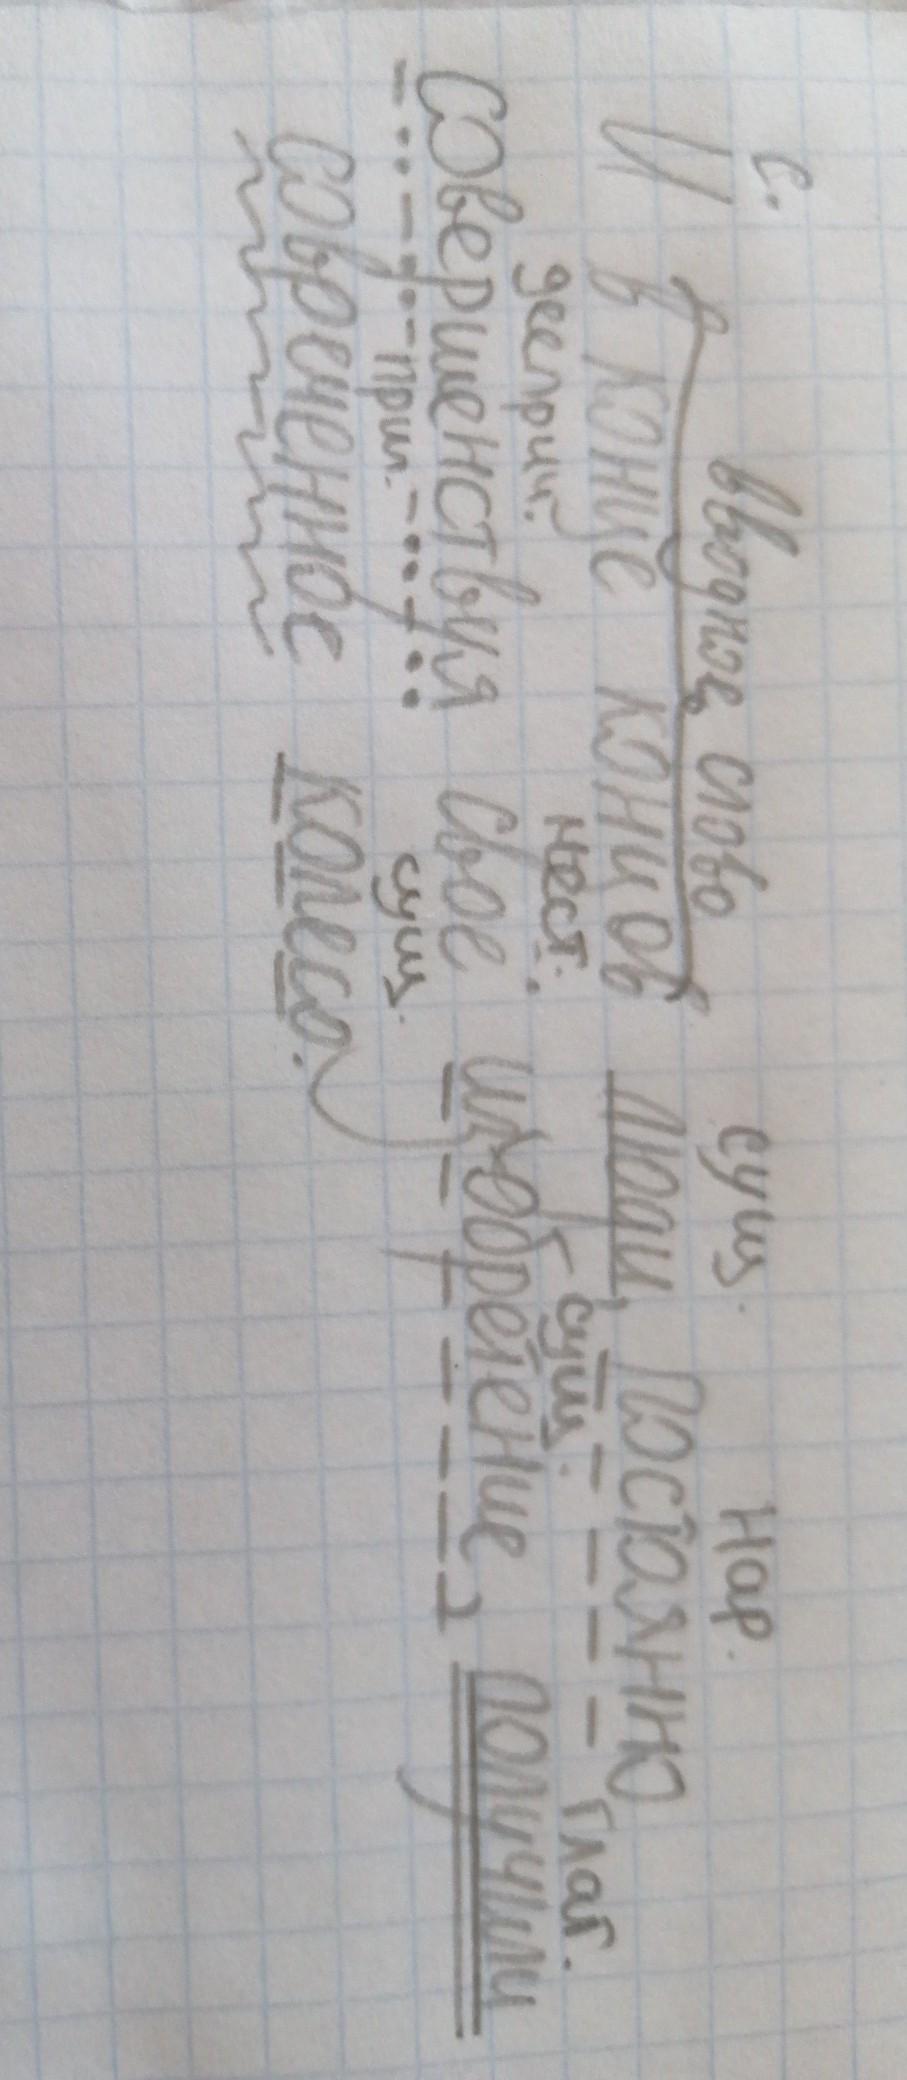 с. вводное слово сущ. нар.
И в конце концов люди, постоянно
дееприч. мест. сущ. глаг.
Совершенствуя свое изобретение, получили
прил. сущ.
современное колесо.